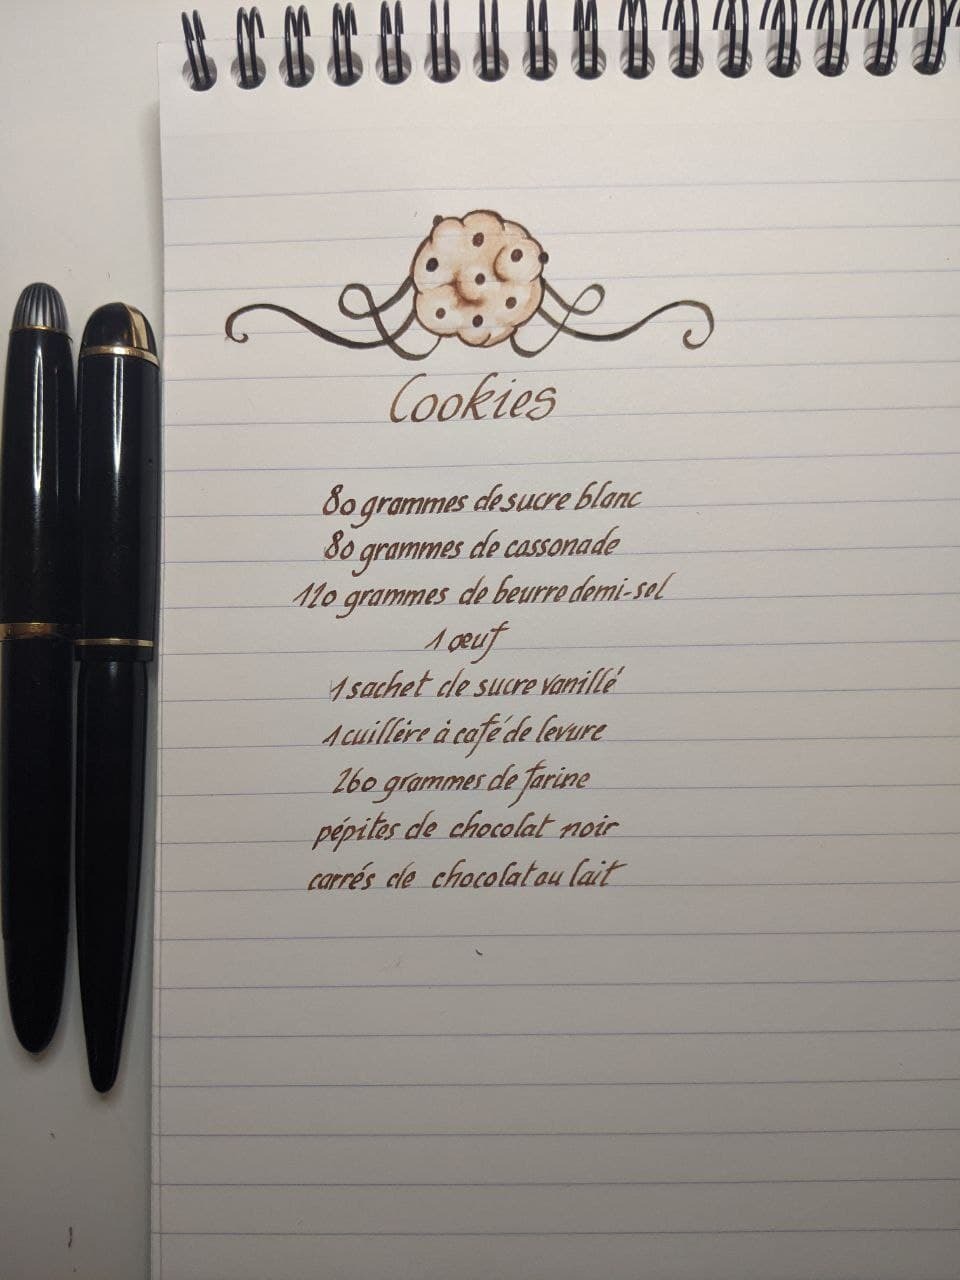 Cookies
80 grammes de sucre blanc
80 grammes de cassonade
120 grammes de beurre demi-sel
1 œuf
1 sachet de sucre vanillé
1 cuillère à café de levure
260 grammes de farine
pépites de chocolat noir
carrés de chocolat au lait